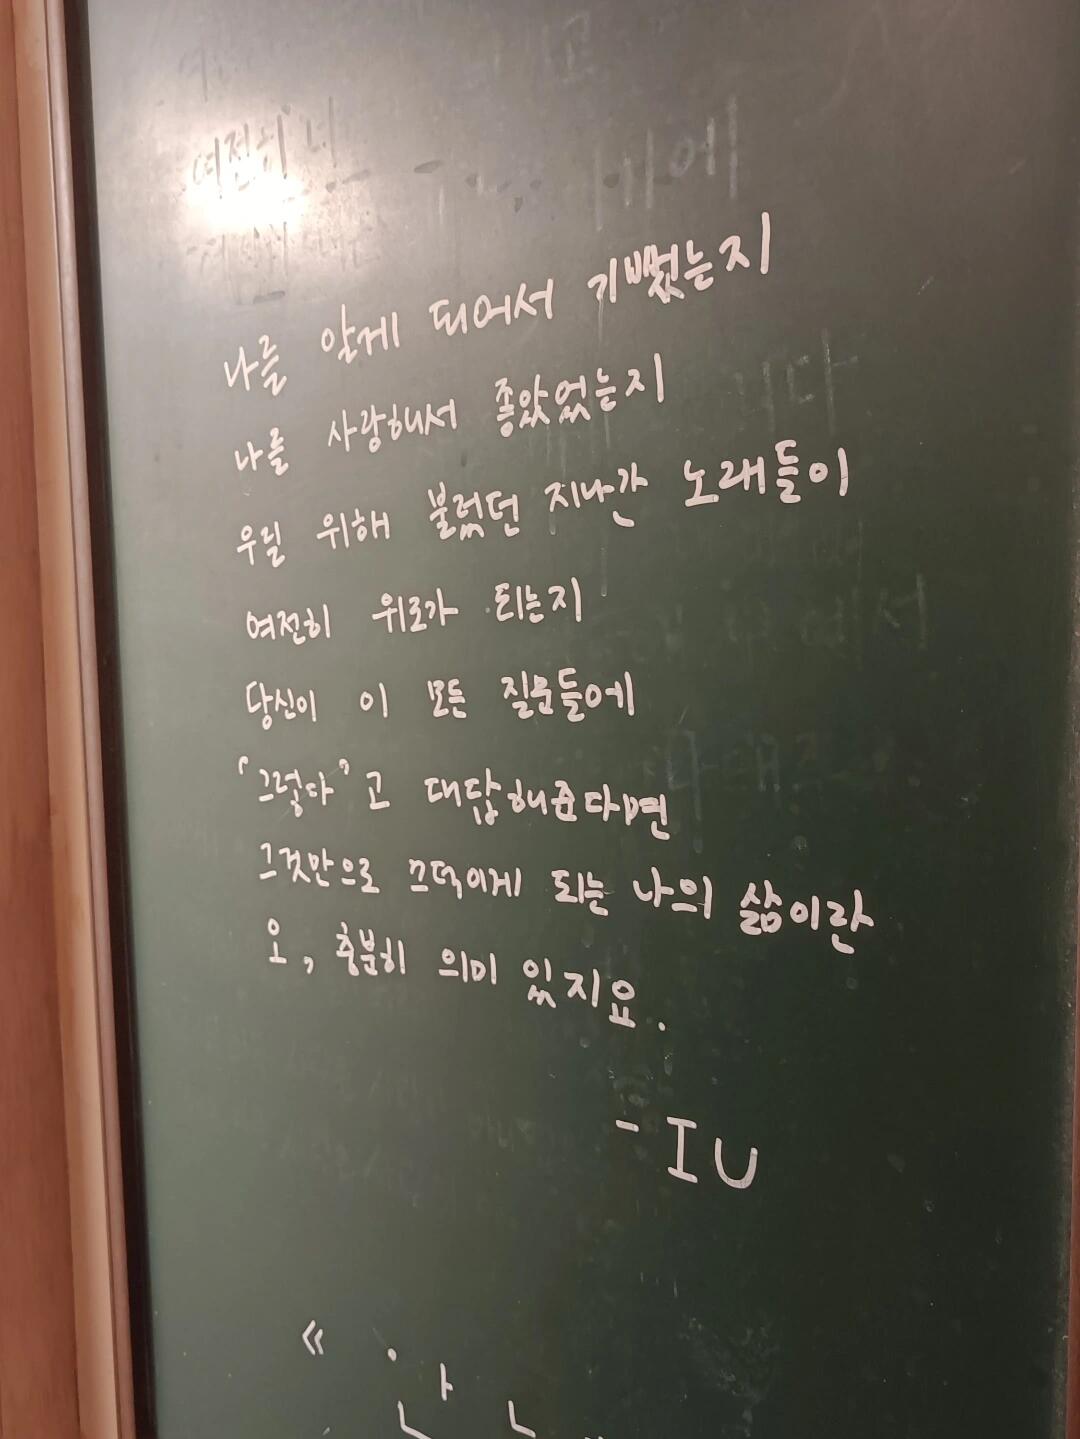 여전히
나를 알게 되어서 기뻤는지
나를 사랑해서 좋았었는지
우릴 위해 불렀던 지나간 노래들이
여전히 위로가 되는지
당신이 이 모든 질문들에
"그렇다"고 대답해준다면
그것만으로 끄덕이게 되는 나의 삶이란
오, 충분히 의미 있지요.
- IU